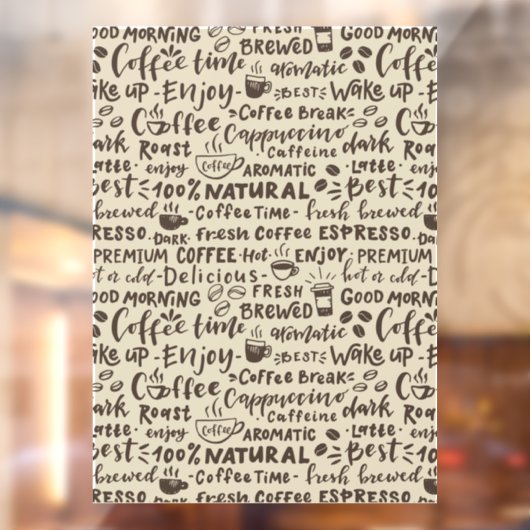 GOOD MORNING FRESH BREWED GOOD MORNING
Coffee time aromatic Coffee
Wake up -Enjoy- BEST Wake up -E
Coffee Coffee Break Coffee
Cappuccino
dark Roast Caffeine dark Roast
Latte enjoy Coffee AROMATIC Latte enjoy
Best 100% NATURAL Best 100%
fresh brewed -Coffee Time- fresh brewed
ESPRESSO DARK Fresh Coffee ESPRESSO DARK
PREMIUM COFFEE Hot ENJOY PREMIUM
hot or cold -Delicious- hot or cold -De
GOOD MORNING FRESH BREWED GOOD MORNING
Coffee time aromatic Coffee
Wake up -Enjoy- BEST Wake up -E
Coffee Coffee Break Coffee
Cappuccino
dark Roast Caffeine dark Roast
Latte enjoy Coffee AROMATIC Latte enjoy
Best 100% NATURAL Best 100%
fresh brewed -Coffee Time- fresh brewed
ESPRESSO DARK Fresh Coffee ESPRESSO DARK